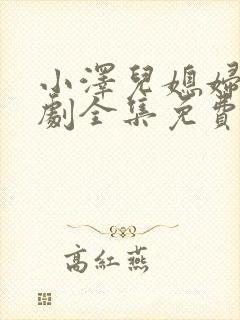 小澤兒媳婦
劇全集免費
高紅燕